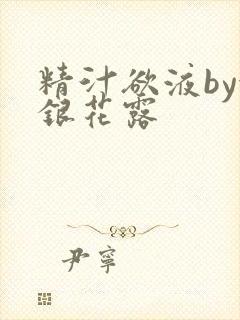 精汁欲液by
銀花露
尹寧